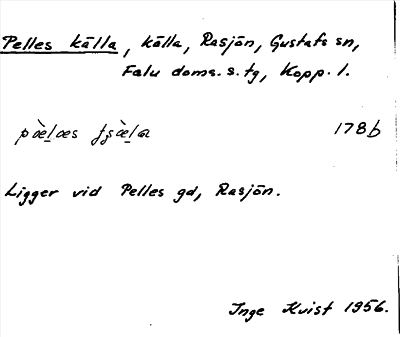 Pelles källa, källa, Rasjön, Gustafs sn,
Falu doms. s. tg, Kopp. l.
178b
Ligger vid Pelles gd, Rasjön.
Inge Kvist 1956.